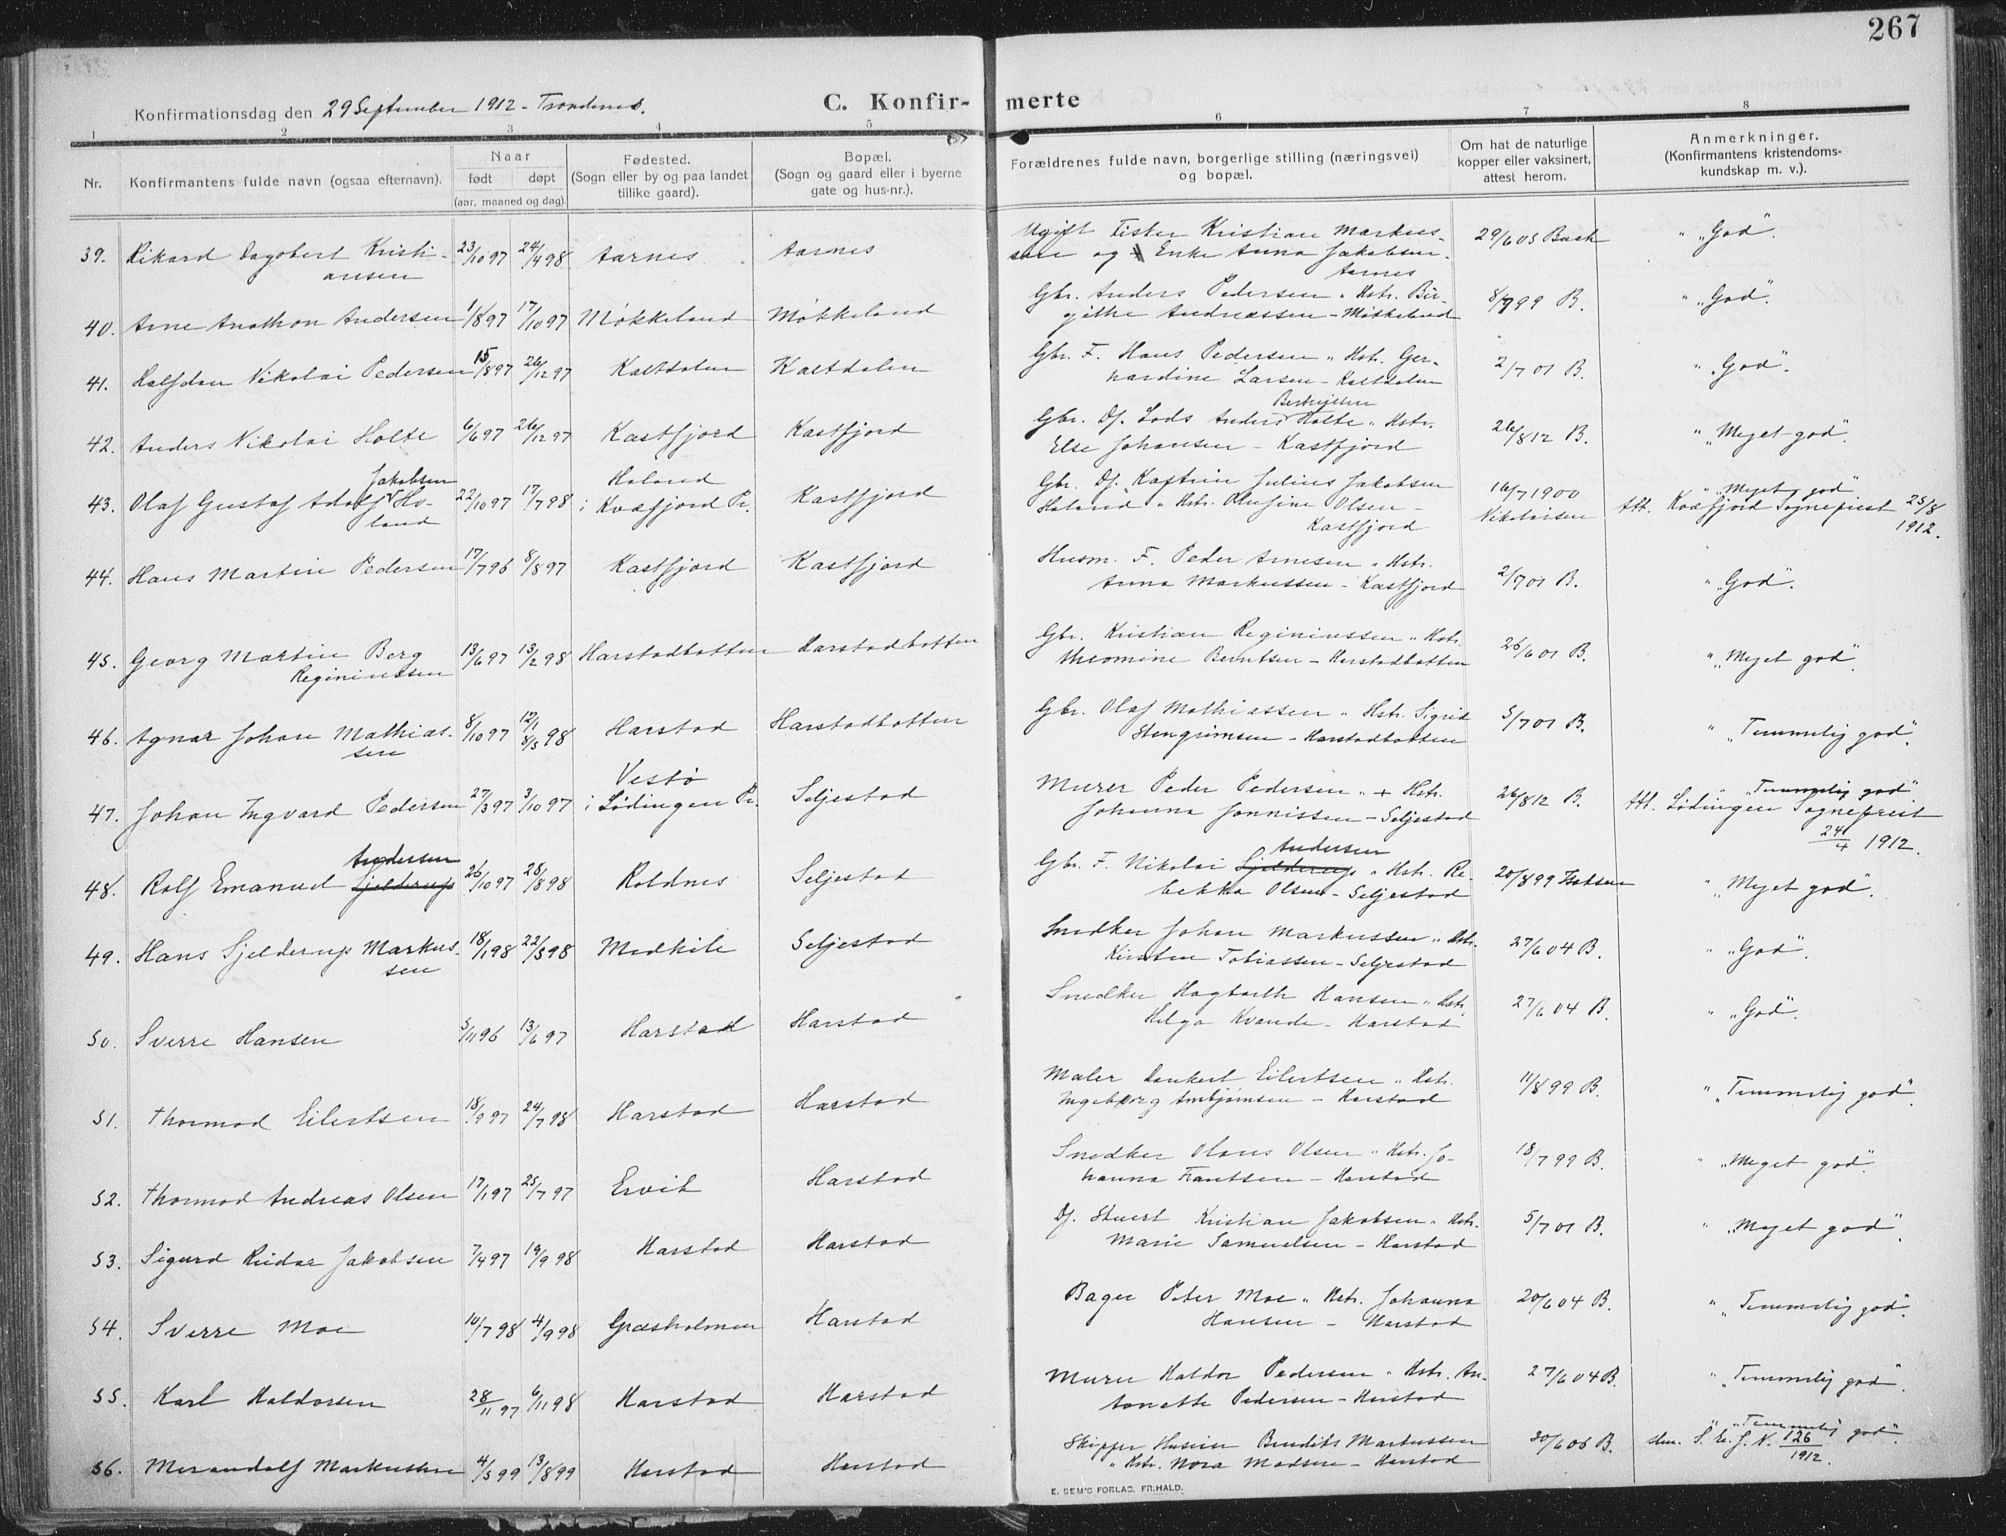 267
Konfirmationsdag den 29 September 1912 - Trondenes.
C. Konfir-merte
1 2 3 4 5 6 7 8
Nr.
Konfirmantens fulde navn (ogsaa efternavn).
Naar
født døpt
(aar, maaned og dag).
Fødested.
(Sogn eller by og paa landet
tillike gaard).
Bopæl.
(Sogn og gaard eller i byerne
gate og hus-nr.).
Forældrenes fulde navn, borgerlige stilling (næringsvei)
og bopæl.
Om hat de naturlige
kopper eller vaksinert,
attest herom.
Anmerkninger.
(Konfirmantens kristendoms-
kundskap m. v.).
39. Rikard Dagobert Kristi- 23/10 97 24/4 98 Aarnes Aarnes Ugift Fisker Kristian Markus- 29/6 05 Bach " "God".
ansen sen og Enke Anna Jakobsen -
Aarnes
40. Arne Anathon Andersen 1/8 97 17/10 97 Møkkeland Møkkeland Gbr. Anders Pedersen " Hstr. Bir- 8/7 99 B. " "God".
githe Andreassen - Møkkeland
41. Halfdan Nikolai Pedersen 15/8 97 26/12 97 Kaltdalen Kaltdalen Gbr. F. Hans Pedersen " Hstr. Ger- 2/7 01 B. " "God".
hardine Larsen - Kaltdalen
42. Anders Nikolai Holte 6/6 97 26/12 97 Kastfjord Kastfjord Gbr. Df. Lods Anders Holte " Hstr. 26/8 12 B. " "Meget god".
Else Johansen - Kastfjord
43. Olaf Gustaf Adolf Jakobsen Ho- 22/10 97 17/7 98 Holand Kastfjord Gbr. Df. Julius Jakobsen 16/7 1900 " "Meget god"
land i Kvæfjord Pr. Holand " Hstr. Olufine Olsen - Nikolaisen Att. Kvæfjord Sogneprest 25/8
Kastfjord 1912.
44. Hans Martin Pedersen 17/7 96 8/8 97 Kastfjord Kastfjord Husm. F. Peder Arnesen " Hstr. 2/7 01 B. " "God".
Anna Markussen - Kastfjord
45. Georg Martin Berg 13/6 97 13/2 98 Harstadbotten Harstadbotten Gbr. Kristian Reginiussen " Hstr. 26/6 01 B. " "Meget god".
Reginiussen Thomine Berntsen - Harstadbotten
46. Agnar Johan Mathias- 8/10 97 12/1 8/5 98 Harstad Harstadbotten Gbr. Olaf Mathiassen " Hstr. Sigrid 5/7 01 B. " "Temmelig god".
sen Stengrimsen - Harstadbotten
47. Johan Ingvard Pedersen 27/3 97 3/10 97 Vestø Seljestad Murer Peder Pedersen " + Hstr. 26/8 12 B. " "Temmelig god"
i Lødingen Pr. Johanna Jonnissen - Seljestad Att. Lødingen Sogneprest
24/4 1912.
48. Rolf Emanuel Sjelderup Andersen 26/10 97 28/8 98 Roldnes Seljestad Gbr. F. Nikolai Sjelderup Andersen " Hstr. Re- 20/8 99 " "Meget god".
bekka Olsen - Seljestad
49. Hans Sjelderup Markus- 18/1 98 22/5 98 Medkile Seljestad Snedker Johan Markussen " Hstr. 27/6 04 B. " "God".
sen Kirsten Tobiassen - Seljestad
50. Sverre Hansen 5/11 96 13/6 97 Harstad Harstad Snedker Hagbarth Hansen " Hstr. 27/6 04 B. " "God".
Helga Kvande - Harstad
51. Thormod Eilertsen 18/9 97 24/7 98 Harstad Harstad Maler Dankert Eilertsen " Hstr. 11/8 99 B. " "Temmelig god".
Ingeborg Arnbjørnsen - Harstad
52. Thormod Andreas Olsen 17/1 97 25/7 97 Ervik Harstad Snedker Olaus Olsen " Hstr. Jo- 18/7 99 B. " "Meget god".
hanna Frantsen - Harstad
53. Sigurd Reidar Jakobsen 7/4 97 19/9 98 Harstad Harstad Df. Stuert Kristian Jakobsen " Hstr. 5/7 01 B. " "Meget god".
Marie Samuelsen - Harstad
54. Sverre Moe 10/7 98 4/9 98 Græsholmen Harstad Bager Peter Moe " Hstr. Johanna 20/6 04 B. " "Temmelig god".
Hansen - Harstad
55. Karl Haldorsen 28/11 97 6/11 98 Harstad Harstad Murer Haldor Pedersen " Hstr. An- 27/6 04 B. " "Temmelig god".
tonette Pedersen - Harstad
56. Merandolf Markussen 4/5 99 13/8 99 Harstad Harstad Skipper Bendiks Markussen 30/6 06 B. "Temmelig god".
" Hstr. Nora Madsen - Harstad S. E. J. N. 126/1912.
E. SEM'S FORLAG, FR.HALD.